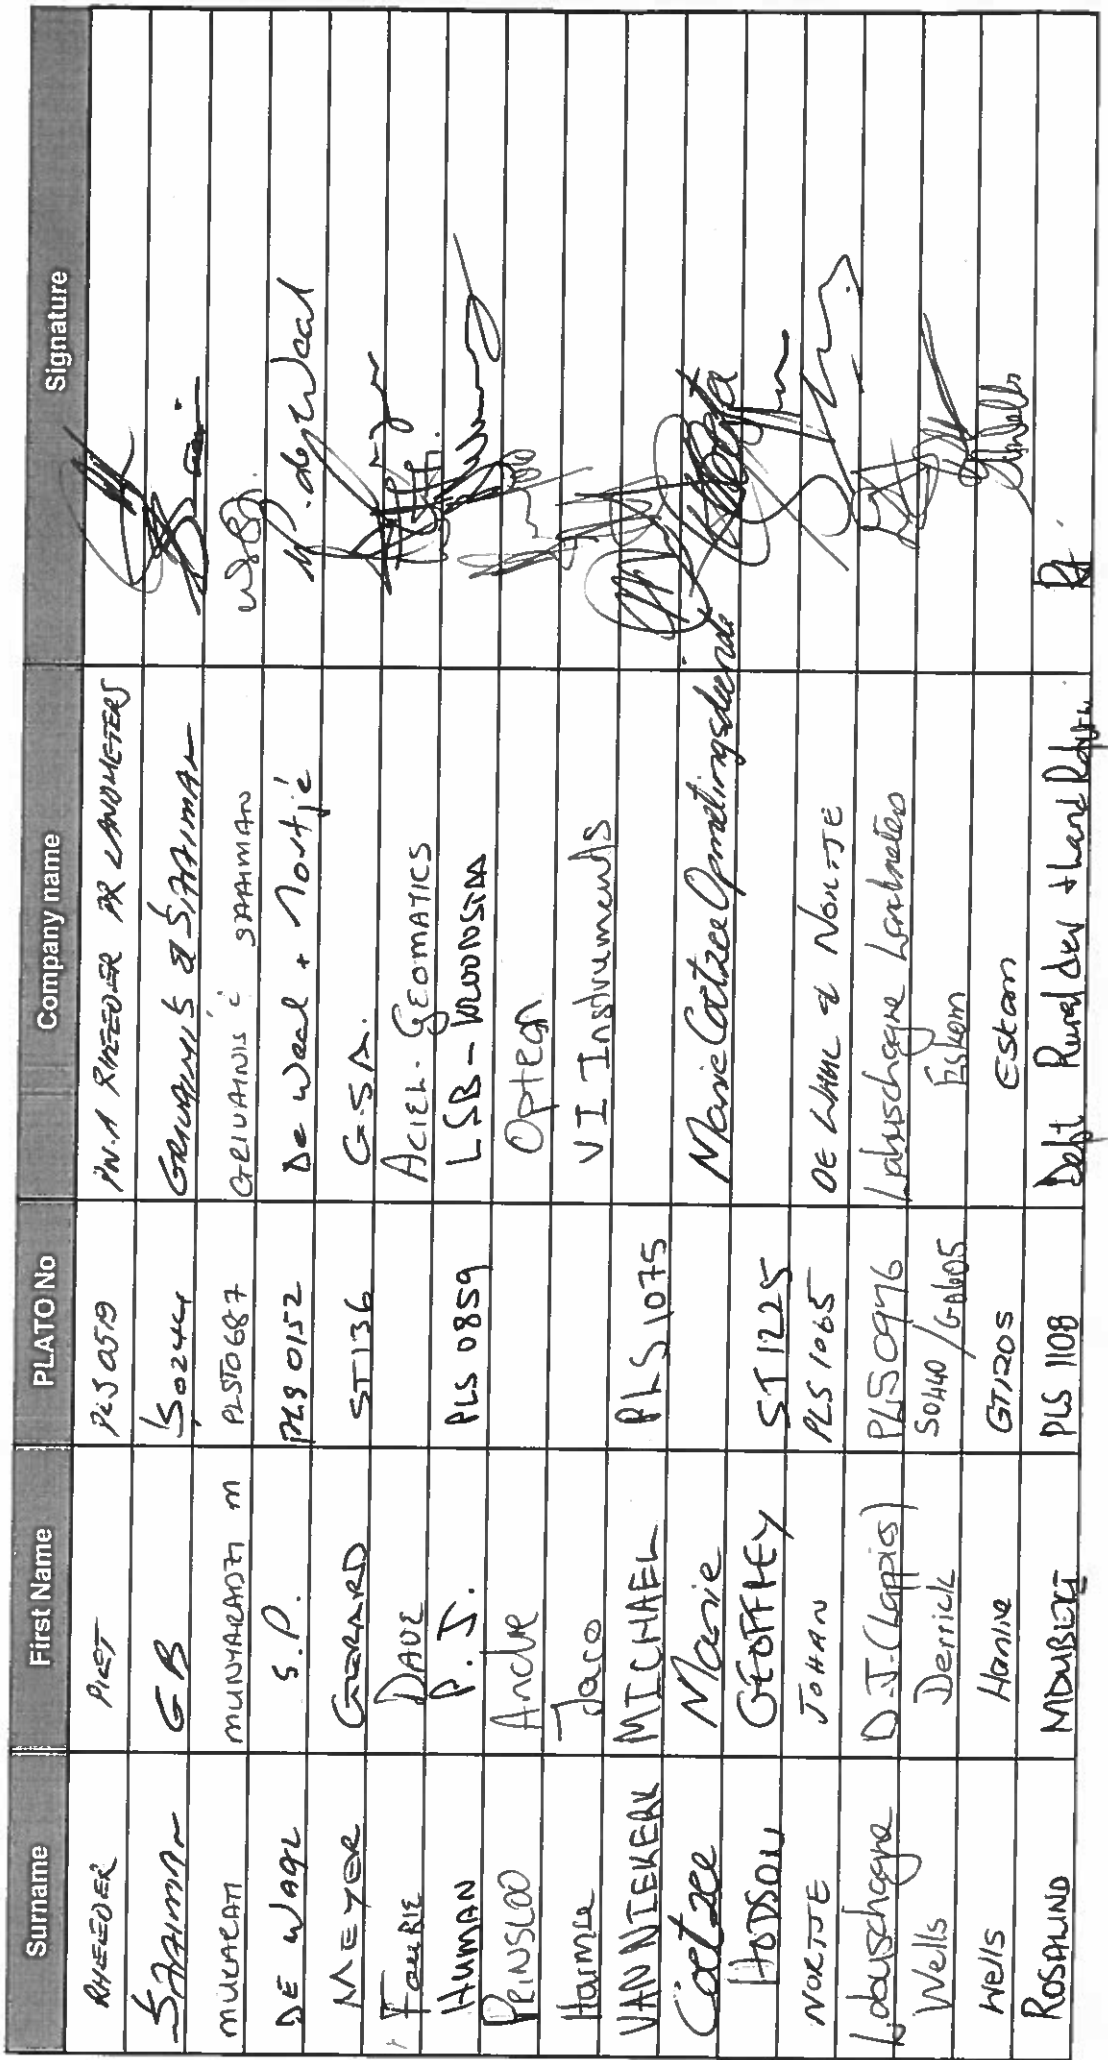 Surname First Name PLATO No Company name Signature
RHEEDER PIET PLS 0519 P.W.A RHEEDER PR LANDMETERS
STAIMAN G B S0244 GRIVAINIS & STAIMAN
MUKARATI MUNYARADZI M PLST0687 GRIVAINIS & STAIMAN
DE WAAL S.P. PLS 0152 De Waal + Nortjé
MEYER GERARD ST136 G.S.A.
FOURIE DAVE ACIEL GEOMATICS
HUMAN P.J. PLS 0859 LSB - KROONSTAD
PRINSLOO Andre Optron
Harmse Jaco VI Instruments
VAN NIEKERK MICHAEL PLS 1075
Coetzee Marie Marie Coetzee Opmetingsdienste
HODSON GEOFFREY ST1225
NORTJE JOHAN PLS 1065 DE WAAL & NORTJE
Labuschagne D.J. (Lappies) PLS 0976 Labuschagne Landmeters
Wells Derrick Eskom
Wells Hanlie GT1205 Eskom
ROSALIND MDUBEKI PLS 1108 Dept Rural Dev + Land Reform